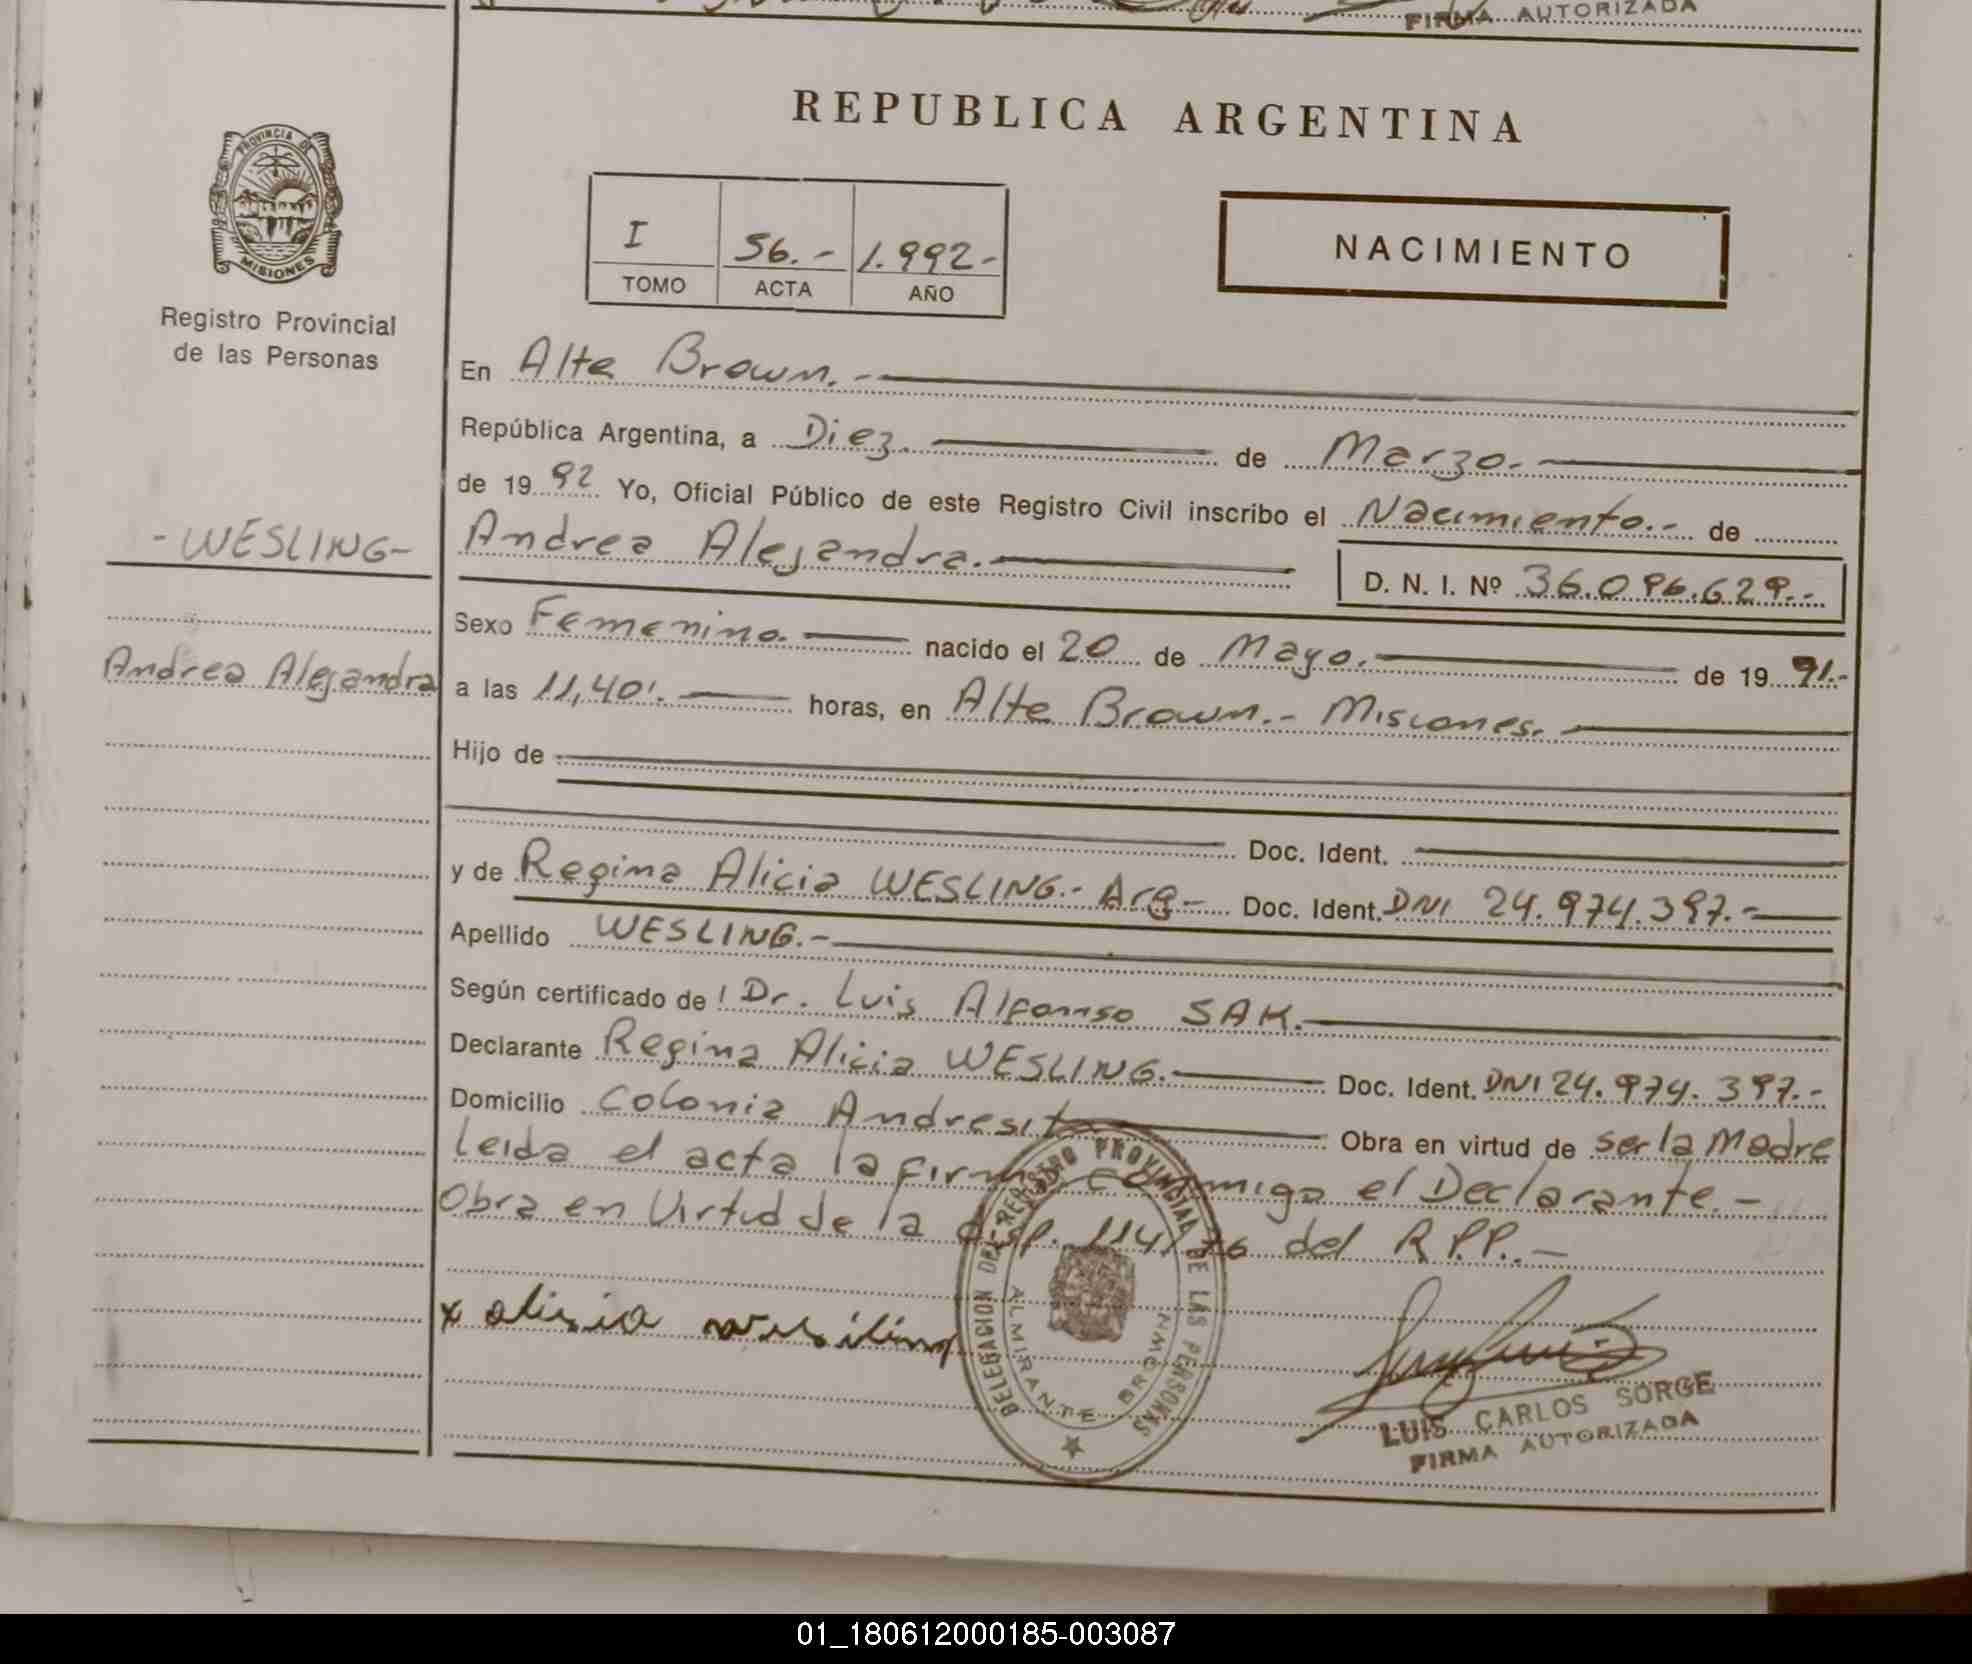 FIRMA AUTORIZADA
REPUBLICA ARGENTINA
PROVINCIA DE MISIONES
Registro Provincial
de las Personas
I 56.- 1.992-
TOMO ACTA AÑO
NACIMIENTO
En Alte Brown.-
República Argentina, a Diez. de Marzo.-
de 1992 Yo, Oficial Público de este Registro Civil inscribo el Nacimiento.- de
-WESLING-
Andrea Alejandra.
D. N. I. Nº 36.096.629.-
Sexo Femenino. nacido el 20 de Mayo. de 1991.-
Andrea Alejandra
a las 11,40'. horas, en Alte Brown.- Misiones.
Hijo de
Doc. Ident.
y de Regina Alicia WESLING.- Arg- Doc. Ident. DNI 24.974.397.-
Apellido WESLING.-
Según certificado de Dr. Luis Alfonso SAK.
Declarante Regina Alicia WESLING. Doc. Ident. DNI 24.974.397.-
Domicilio Colonia Andresito Obra en virtud de ser la Madre
leida el acta la firma conmigo el Declarante.-
Obra en Virtud de la disp. 114/76 del R.P.P.-
x alisia wesiling
DELEGACION DEL REGISTRO PROVINCIAL DE LAS PERSONAS
ALMIRANTE BROWN
LUIS CARLOS SORGE
FIRMA AUTORIZADA
01_180612000185-003087